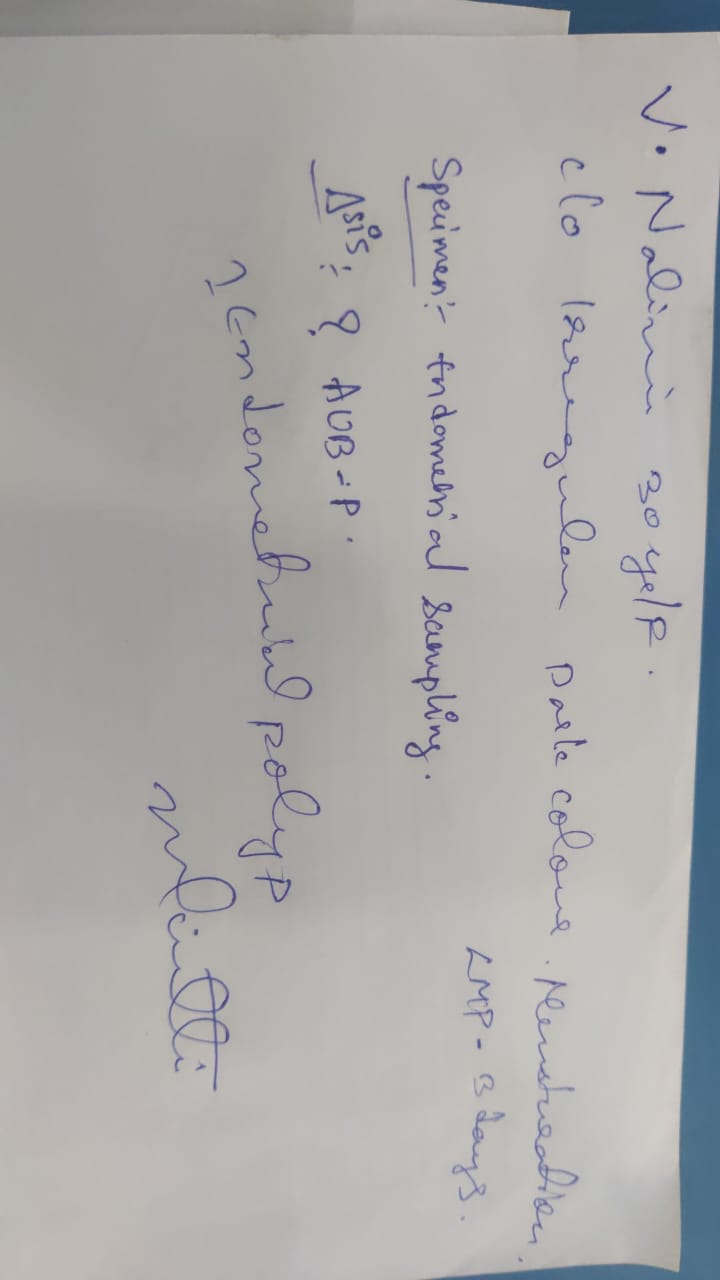 V. Nalini 30 ye/F.
c/o Irregular Dark colour. Menstruation.
LMP - 3 days.
Specimen:- Endometrial Sampling.
Δsis:- ? AUB-P.
? Endometrial polyp